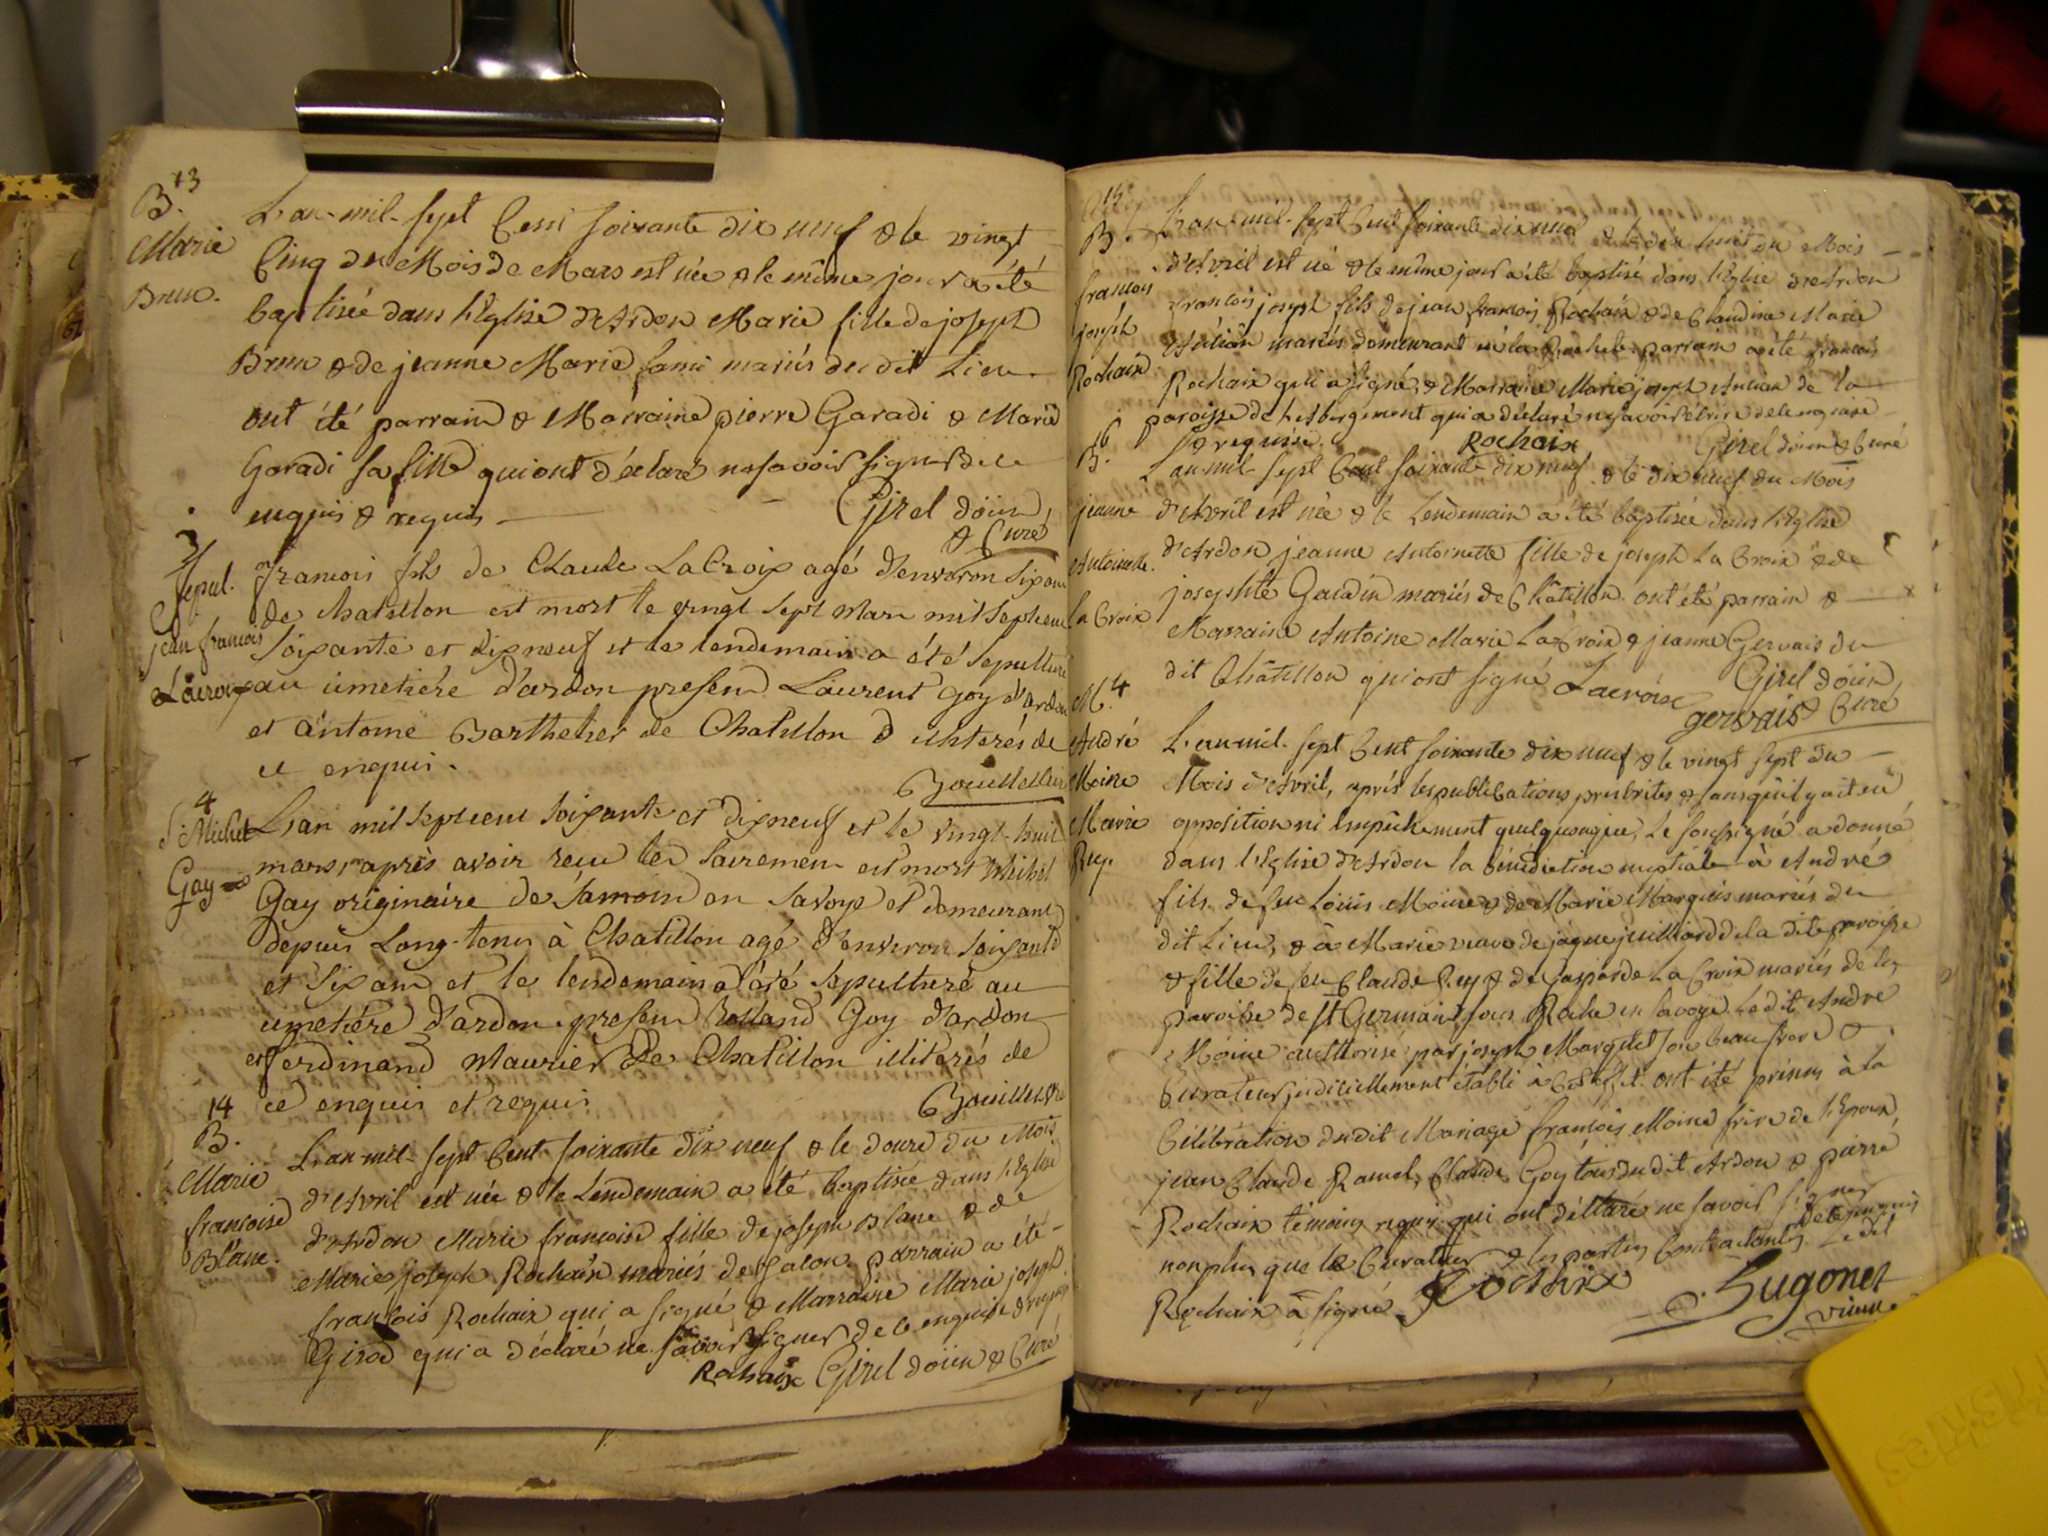 13
B.
Marie
Brun.
L'an mil sept Cent soixante dix neuf & le vingt
Cinq du Mois de Mars est née & le même jour a été
baptisée dans l'Eglise d'Ardon Marie fille de joseph
Brun & de jeanne Marie famie mariés du dit Lieu.
ont été parrain & Marraine pierre Garadi & Marie
Garadi sa fille qui ont déclaré ne savoir signer de ce
enquis & requis
Girel doïen
& Curé
3
sepul.
jean francois
Lacroix
francois fils de Claude LaCroix agé d'environ six ans
de chatillon est mort le vingt sept mars mil sept cent
soixante et dixneuf et le lendemain a été sepulturé
au cimetiére d'ardon presens Laurent Goy d'ardon
et antoine Barthelier de Chatillon illiterés de
ce enquis.
Bouillet
4
S. Michel
Gay
L'an mil sept cent soixante et dixneuf et le vingt-huit
mars après avoir reçu les sacremens est mort Michel
Gay originaire de samoin en savoye et demeurant
depuis Long-tems à Chatillon agé d'environ soixante
et six ans et le lendemain a été sepulturé au
cimetiére d'ardon presens Rolland Goy d'ardon
et ferdinand Maurier de Chatillon illiterés de
ce enquis et requis
Bouillet
14
B.
Marie
francoise
Blanc.
L'an mil sept Cent soixante dix neuf & le douze du Mois
d'Avril est née & le Lendemain a été baptisée dans l'Eglise
d'Ardon Marie francoise fille de joseph Blanc & de
Marie joseph Rochaix mariés de jalon parrain a été
francois Rochaix qui a signé & Marraine Marie joseph
Girod qui a déclaré ne savoir signer de ce enquise & requise
Rochaix Girel doïen & Curé
15
B.
francois
joseph
Rochaix
L'an mil sept Cent soixante dix neuf & le dix huit du Mois
d'Avril est né & le même jour a été baptisé dans l'Eglise d'Ardon
francois joseph fils de jean francois Rochaix & de Claudine Marie
mariés demeurant à la Rochette parrain a été francois
Rochaix qui a signé, & Marraine Marie joseph de la
paroisse de l'Abergement qui a déclaré ne savoir écrire de ce enquise
& requise. Rochaix Girel doïen & Curé
16
B.
jeanne
Antoinette.
La Croix
L'an mil sept Cent soixante dix neuf & le dix neuf du Mois
d'Avril est née & le Lendemain a été baptisée dans l'Eglise
d'Ardon jeanne Antoinette fille de joseph La Croix & de
josephte Gaudin mariés de Châtillon. ont été parrain &
Marraine Antoine Marie La Croix & jeanne Gervais du
dit Châtillon qui ont signé Lacroix Girel doïen
gervais & Curé
M. 4
André
Moine
Marie
Rey.
L'an mil sept Cent soixante dix neuf & le vingt sept du
Mois d'Avril, après les publications prescrites & sans qu'il y ait eu
opposition ni Empêchement quelquonque, Le soussigné a donné
dans l'Eglise d'Ardon la bénédiction nuptiale à André
fils de feu Loüis Moine & de Marie Marquis mariés du
dit Lieu, & à Marie veuve de jaque juillard de la dite paroisse
& fille de feu Claude Rey & de Gasparde La Croix mariés de la
paroisse de St Germain sous Roche en savoÿe. Ledit André
Moine authorisé par joseph Marquet son beau frere &
Curateur judiciellement établi à Cet effet. ont été présens à la
Célébration dudit Mariage francois Moine frere de l'Epoux,
jean Claude Ramel, Claude Goy tous dudit Ardon & pierre
Rochaix témoins requis qui ont déclaré ne savoir signer
non plus que le Curateur & les parties Contractantes de ce requis Ledit
Rochaix à signé. Rochaix
Hugonet
vicaire